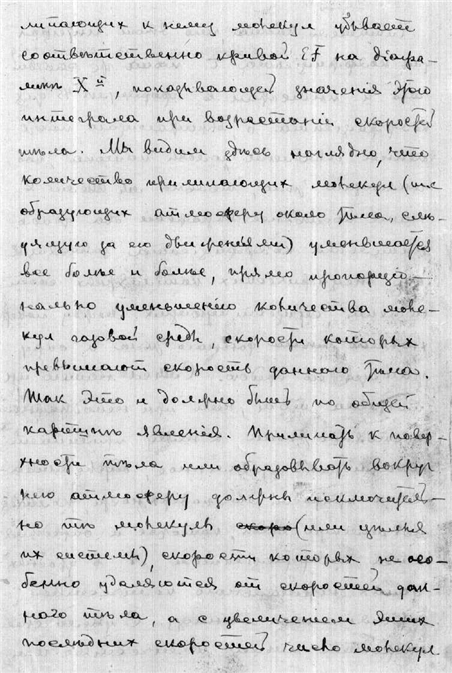 липающихъ къ нему молекулъ убываетъ
соотвѣтственно кривой EF на діагра-
ммѣ X<sup>й</sup>, показывающей значенія этого
интеграла при возрастаніи скоростей
тѣла. Мы видимъ здѣсь наглядно, что
количество прилипающихъ молекулъ (т.е.
образующихъ атмосферу около тѣла, слѣ-
дующую за его движеніями) уменьшается
все болѣе и болѣе, прямо пропорціо-
нально уменьшенію количества моле-
кулъ газовой среды, скорости которыхъ
превышаютъ скорость даннаго тѣла.
Такъ это и должно быть по общей
картинѣ явленія. Прилипать къ повер-
хности тѣла или образовывать вокругъ
него атмосферу должны исключитель-
но тѣ молекулы (или цѣлыя
ихъ системы), скорости которыхъ не осо-
бенно удаляются отъ скоростей дан-
ного тѣла, а съ увеличеніемъ этихъ
послѣднихъ скоростей число молекулъ